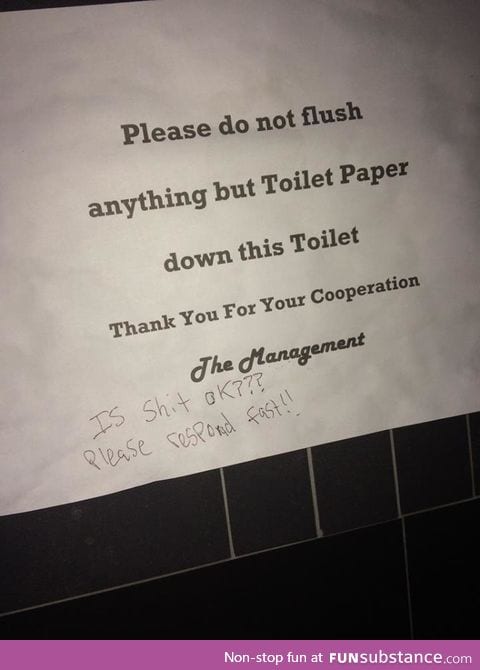 Please do not flush
anything but Toilet Paper
down this Toilet
Thank You For Your Cooperation
The Management
Is Shit oK???
Please resPond fast!!
Non-stop fun at FUNsubstance.com